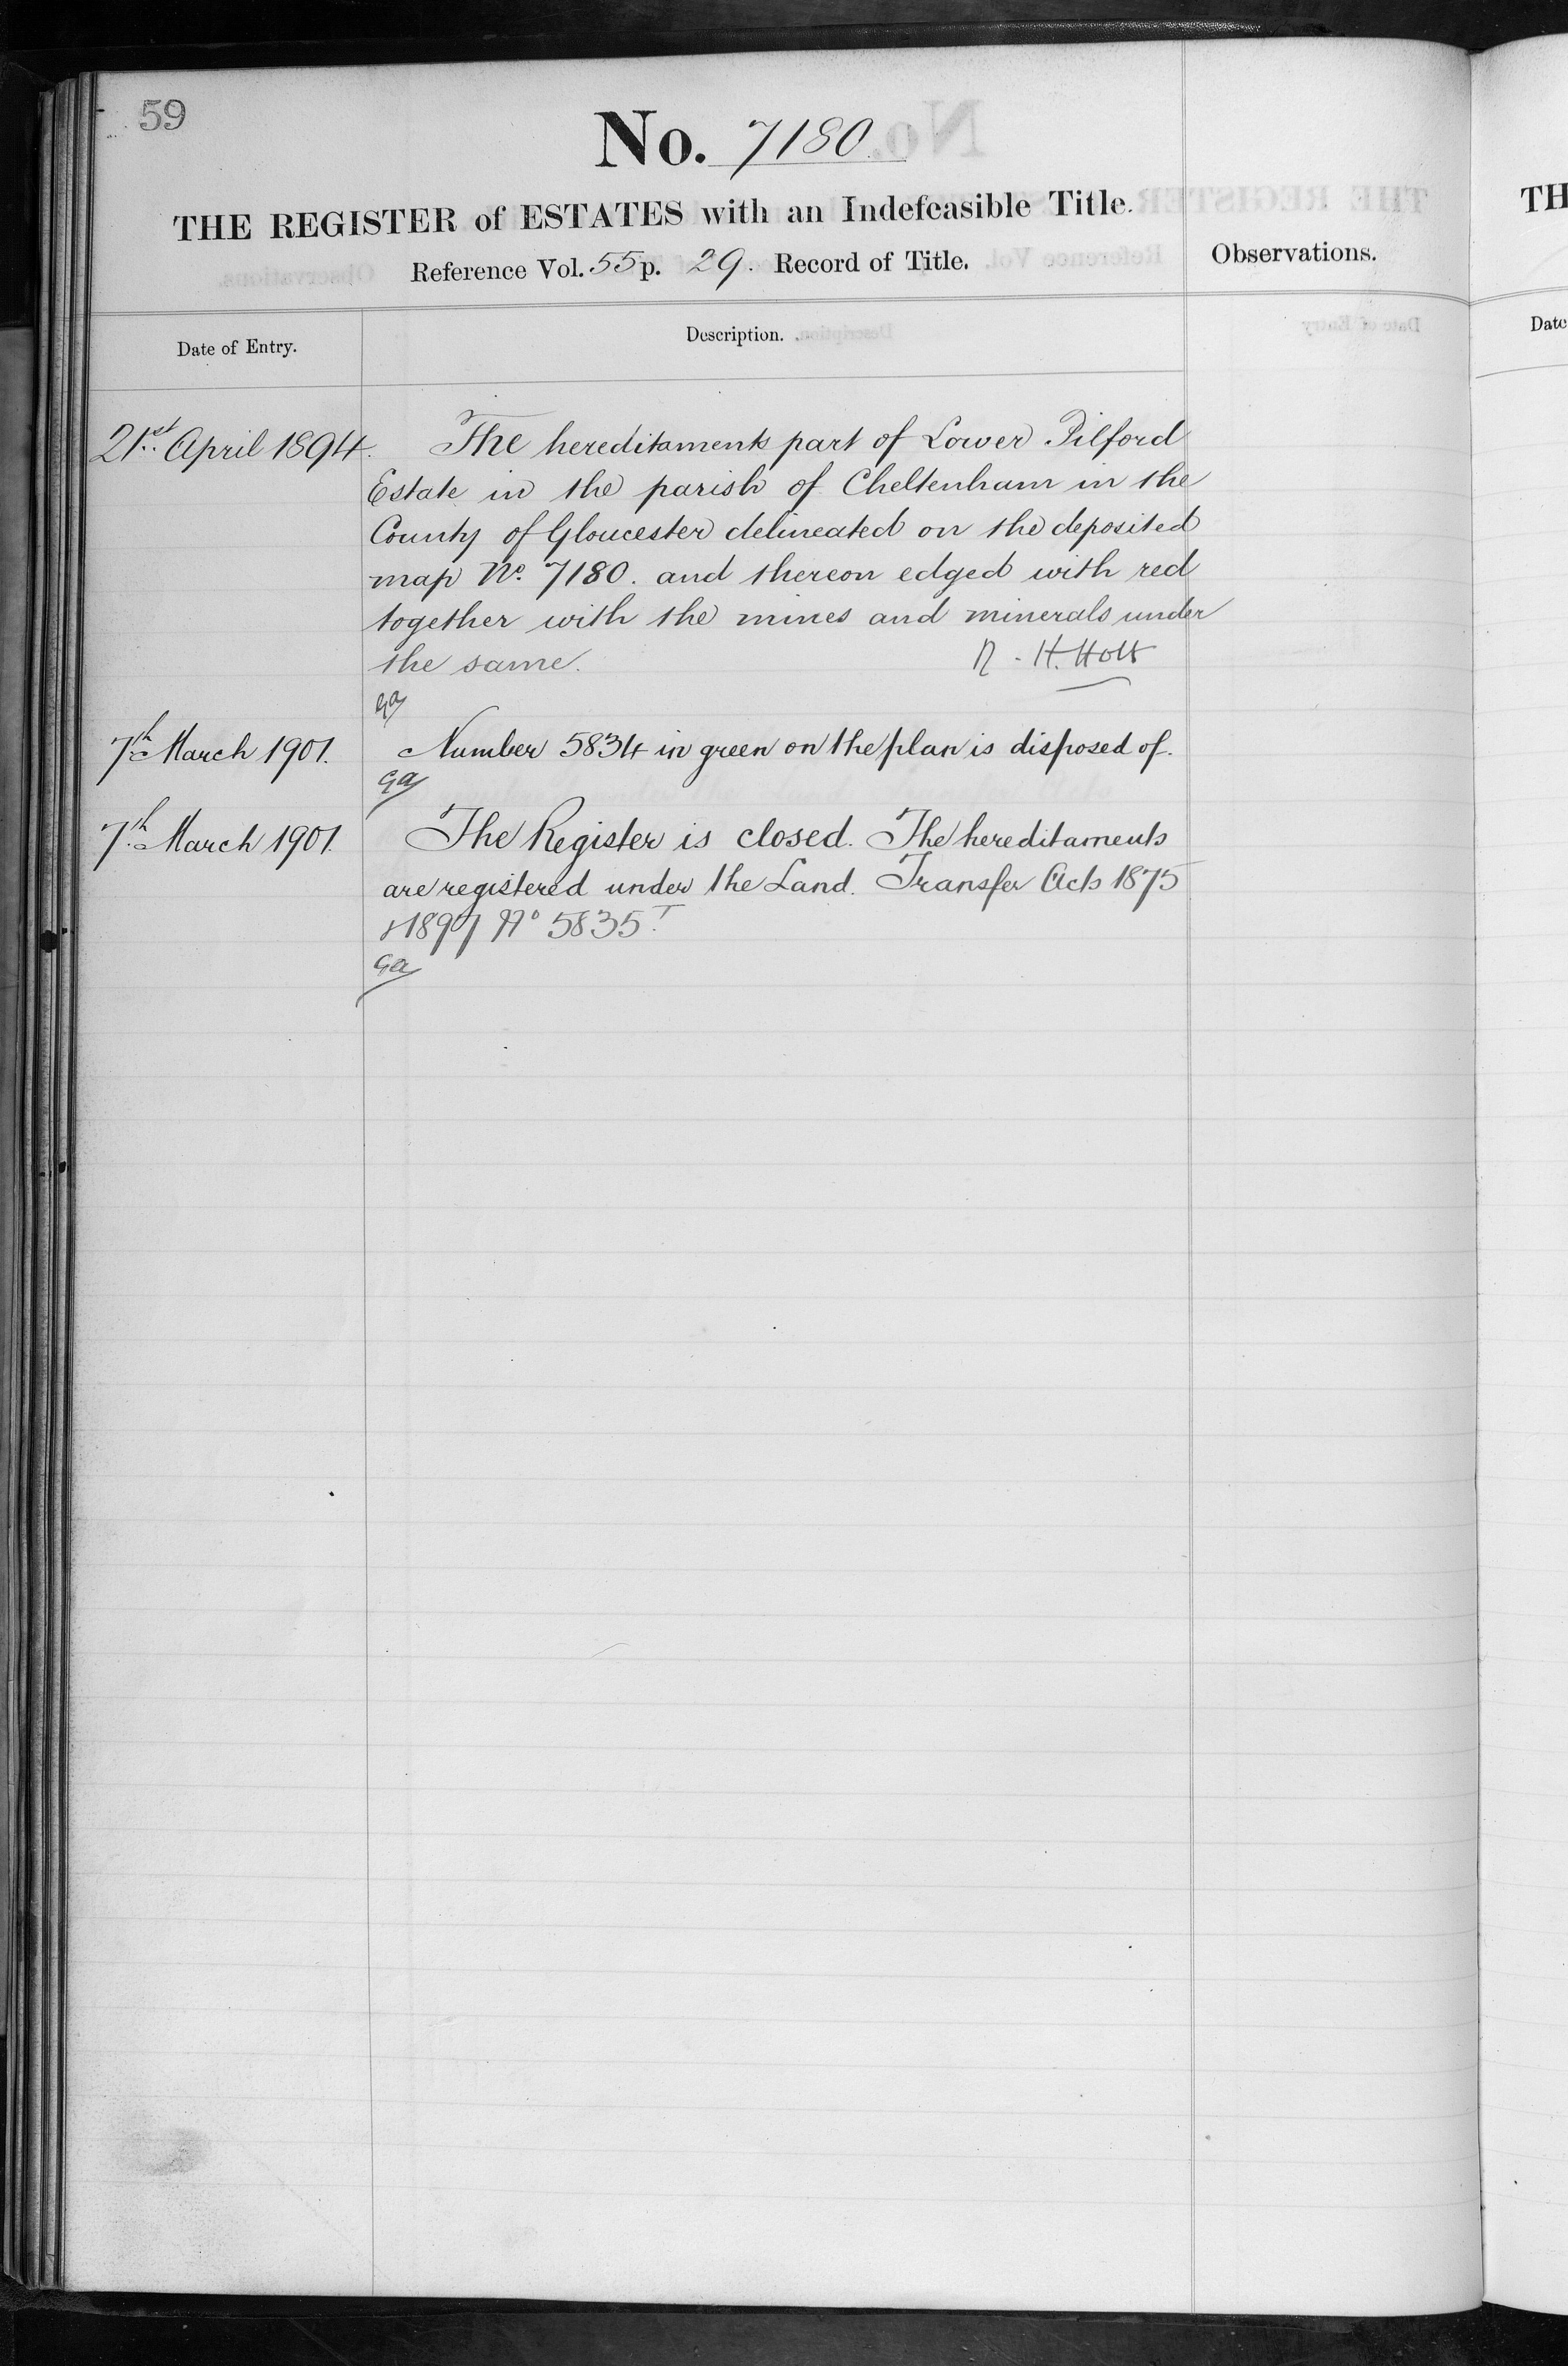 59
No. 7180.
THE REGISTER of ESTATES with an Indefeasible Title.
Reference Vol. 55 p. 29. Record of Title.
Observations.
Date of Entry.
Description.
21st. April 1894.
The hereditaments part of Lower Pilford
Estate in the parish of Cheltenham in the
County of Gloucester delineated on the deposited
map No. 7180. and thereon edged with red
together with the mines and minerals under
the same.
H. Holt
7th March 1901.
Number 5834 in green on the plan is disposed of.
7th. March 1901.
The Register is closed. The hereditaments
are registered under the Land Transfer Acts 1875
& 1897 No 5835.
TH
Date